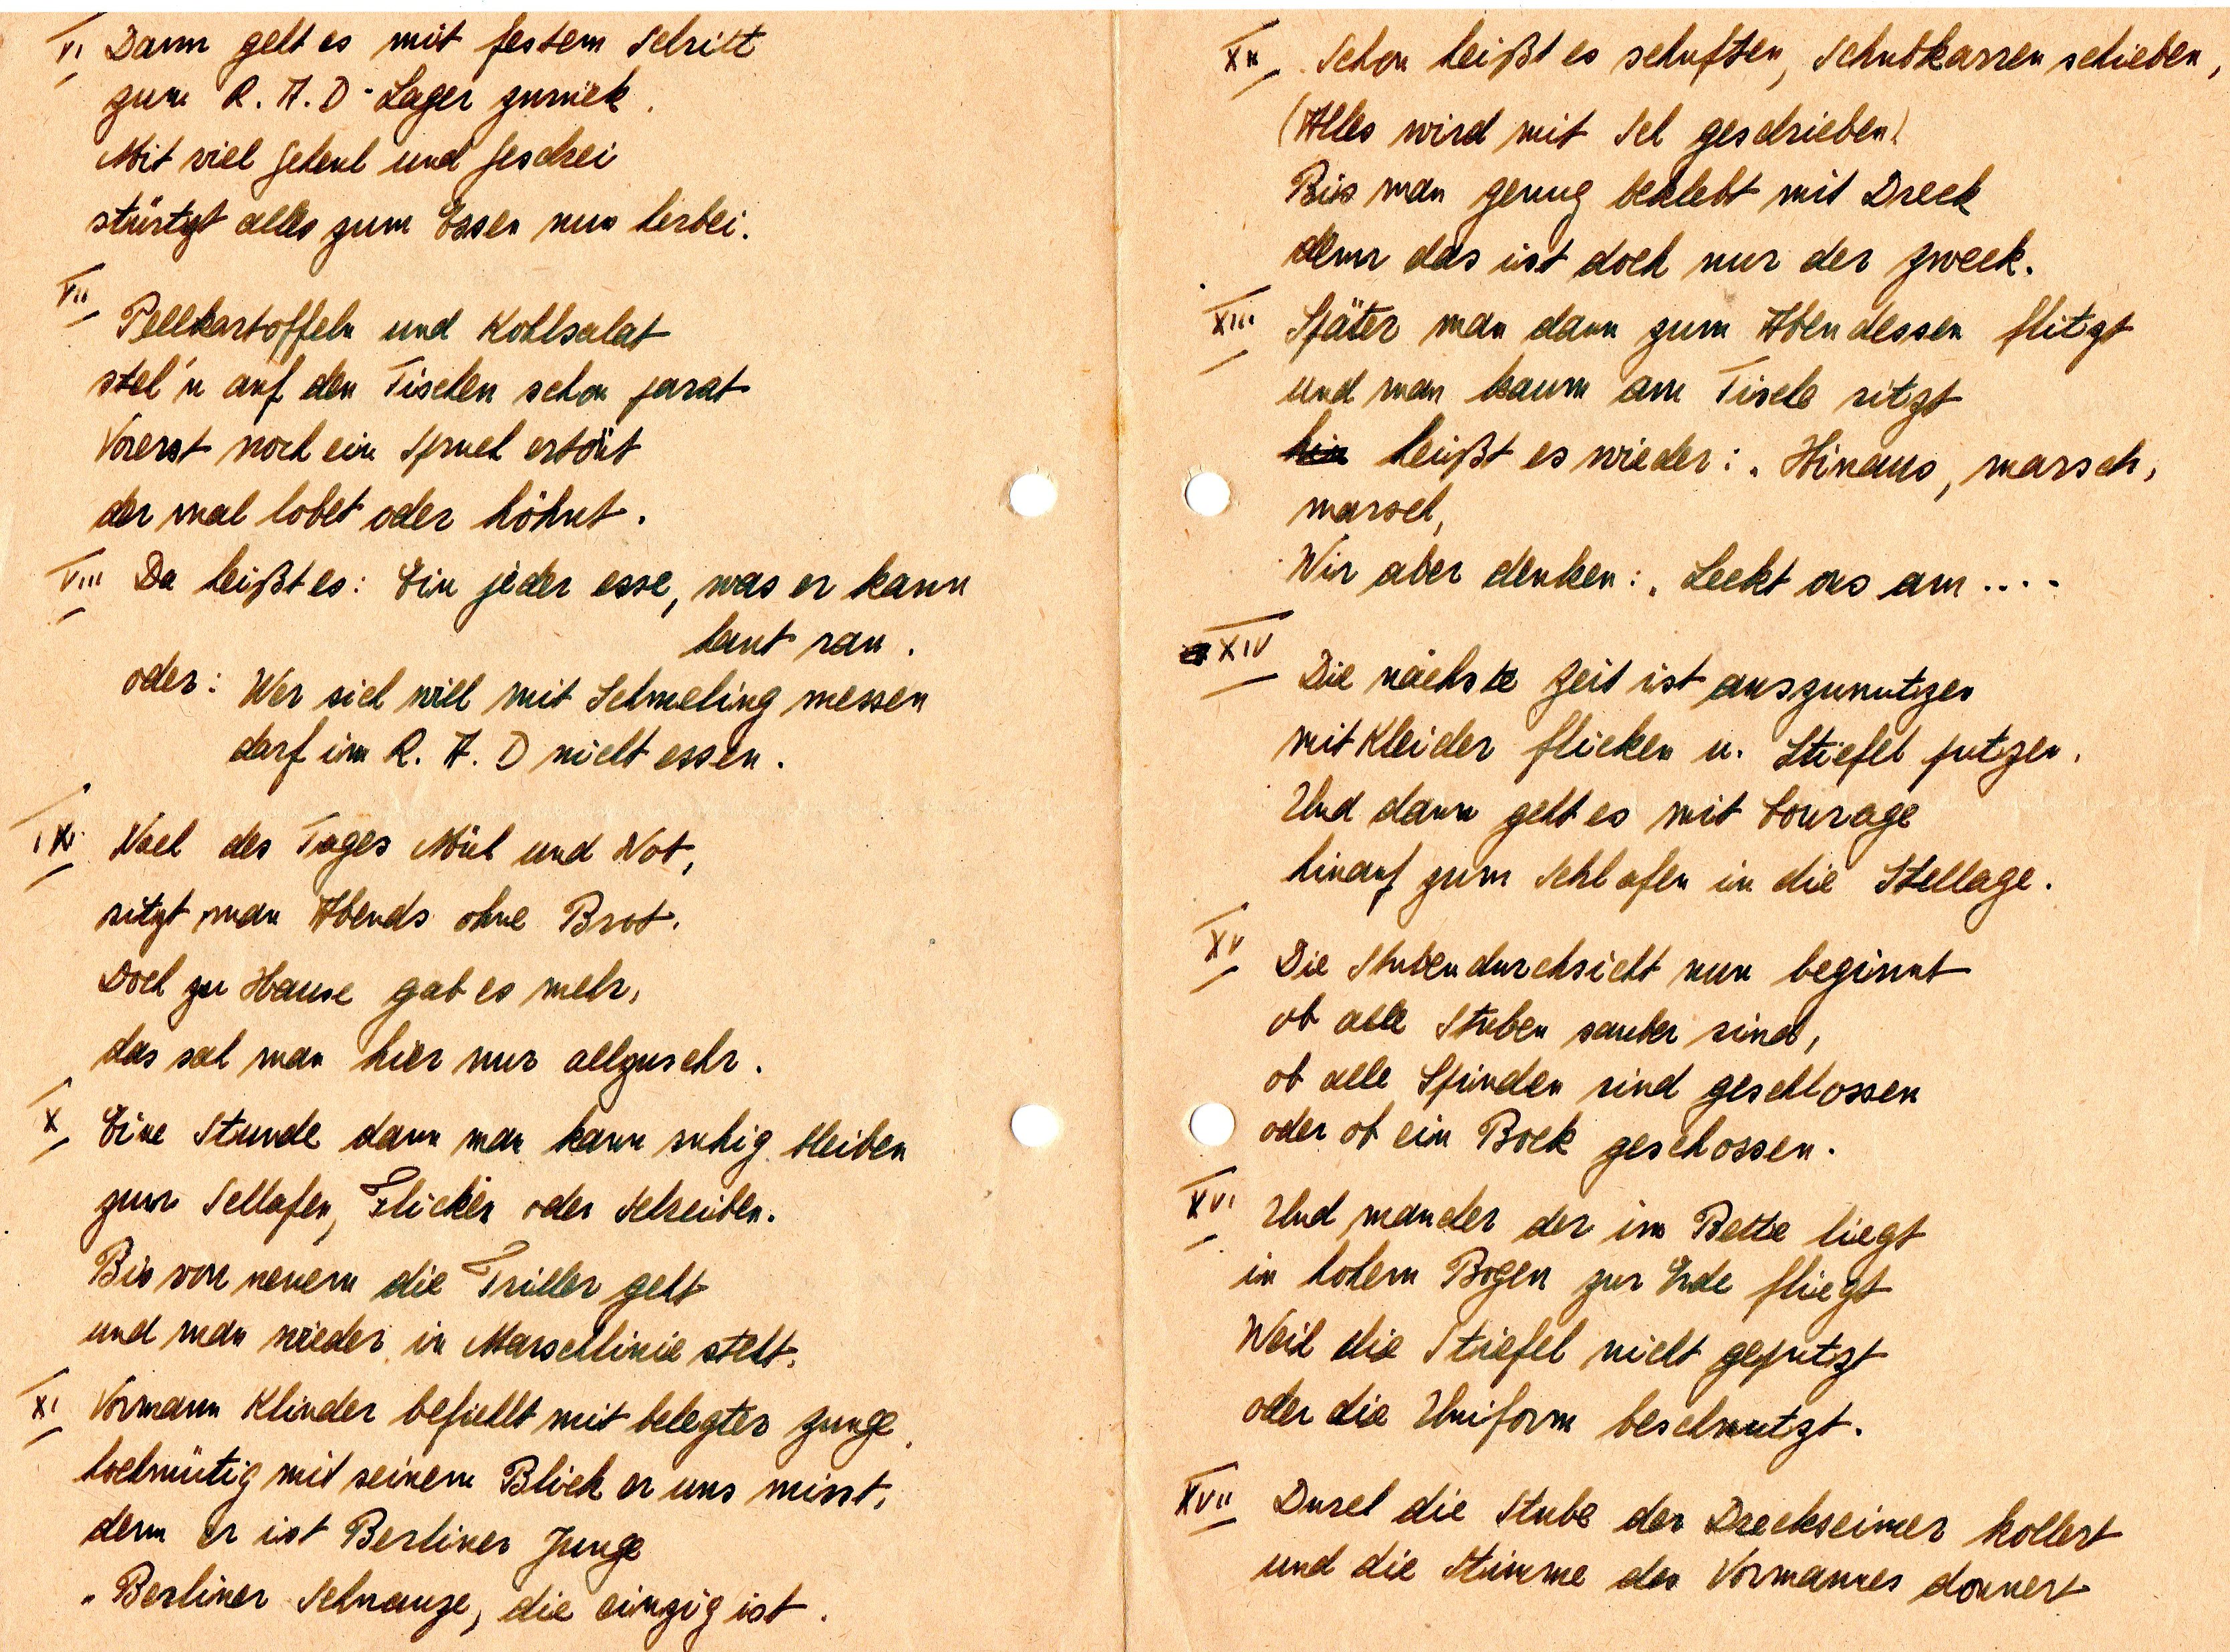 VI Dann geht es mit festem Schritt
zum R. A. D-Lager zurück.
Mit viel Geheul und Geschrei
stürtzt alles zum Essen nun herbei.
VII
Pellkartoffeln und Kohlsalat
steh'n auf den Tischen schon parat
Vorerst noch ein Spruch ertönt
der mal lobet oder höhnt.
VIII Da heißt es: Ein jeder esse, was er kann
haut ran.
oder: Wer sich will mit Schmeling messen
darf im R. A. D nicht essen.
IX Nach des Tages Müh und Not,
sitzt man Abends ohne Brot.
Doch zu Hause gab es mehr,
das sah man hier nur allzusehr.
X Eine Stunde dann man kann ruhig bleiben
zum Schlafen, Flicken oder Schreiben.
Bis von neuem die Triller geht
und man wieder in Marschlinie steht.
XI Vormann Klinder befiehlt mit belegter Zunge,
hochmütig mit seinem Blick er uns misst,
denn er ist Berliner Junge
"Berliner Schnauze, die einzig ist.
XII Schon heißt es schuften, Schubkarren schieben,
(Alles wird mit Sch geschrieben)
Bis man genug beklebt mit Dreck
denn das ist doch nur der Zweck.
XIII Später man dann zum Abendessen flitzt
und man kaum am Tische sitzt
hin heißt es wieder: "Hinaus, marsch,
marsch,
Wir aber denken: "Leckt uns am ....
XIV
Die nächste Zeit ist auszunutzen
mit Kleider flicken u. Stiefel putzen.
Und dann geht es mit Courage
hinauf zum Schlafen in die Stellage.
XV Die Stubendurchsicht nun beginnt
ob alle Stuben sauber sind,
ob alle Spinden sind geschlossen
oder ob ein Bock geschossen.
XVI Und mancher der im Bette liegt
in hohem Bogen zur Erde fliegt
Weil die Stiefel nicht geputzt
oder die Uniform beschmutzt.
XVII Durch die Stube der Dreckseimer kollert
und die Stimme des Vormannes donnert